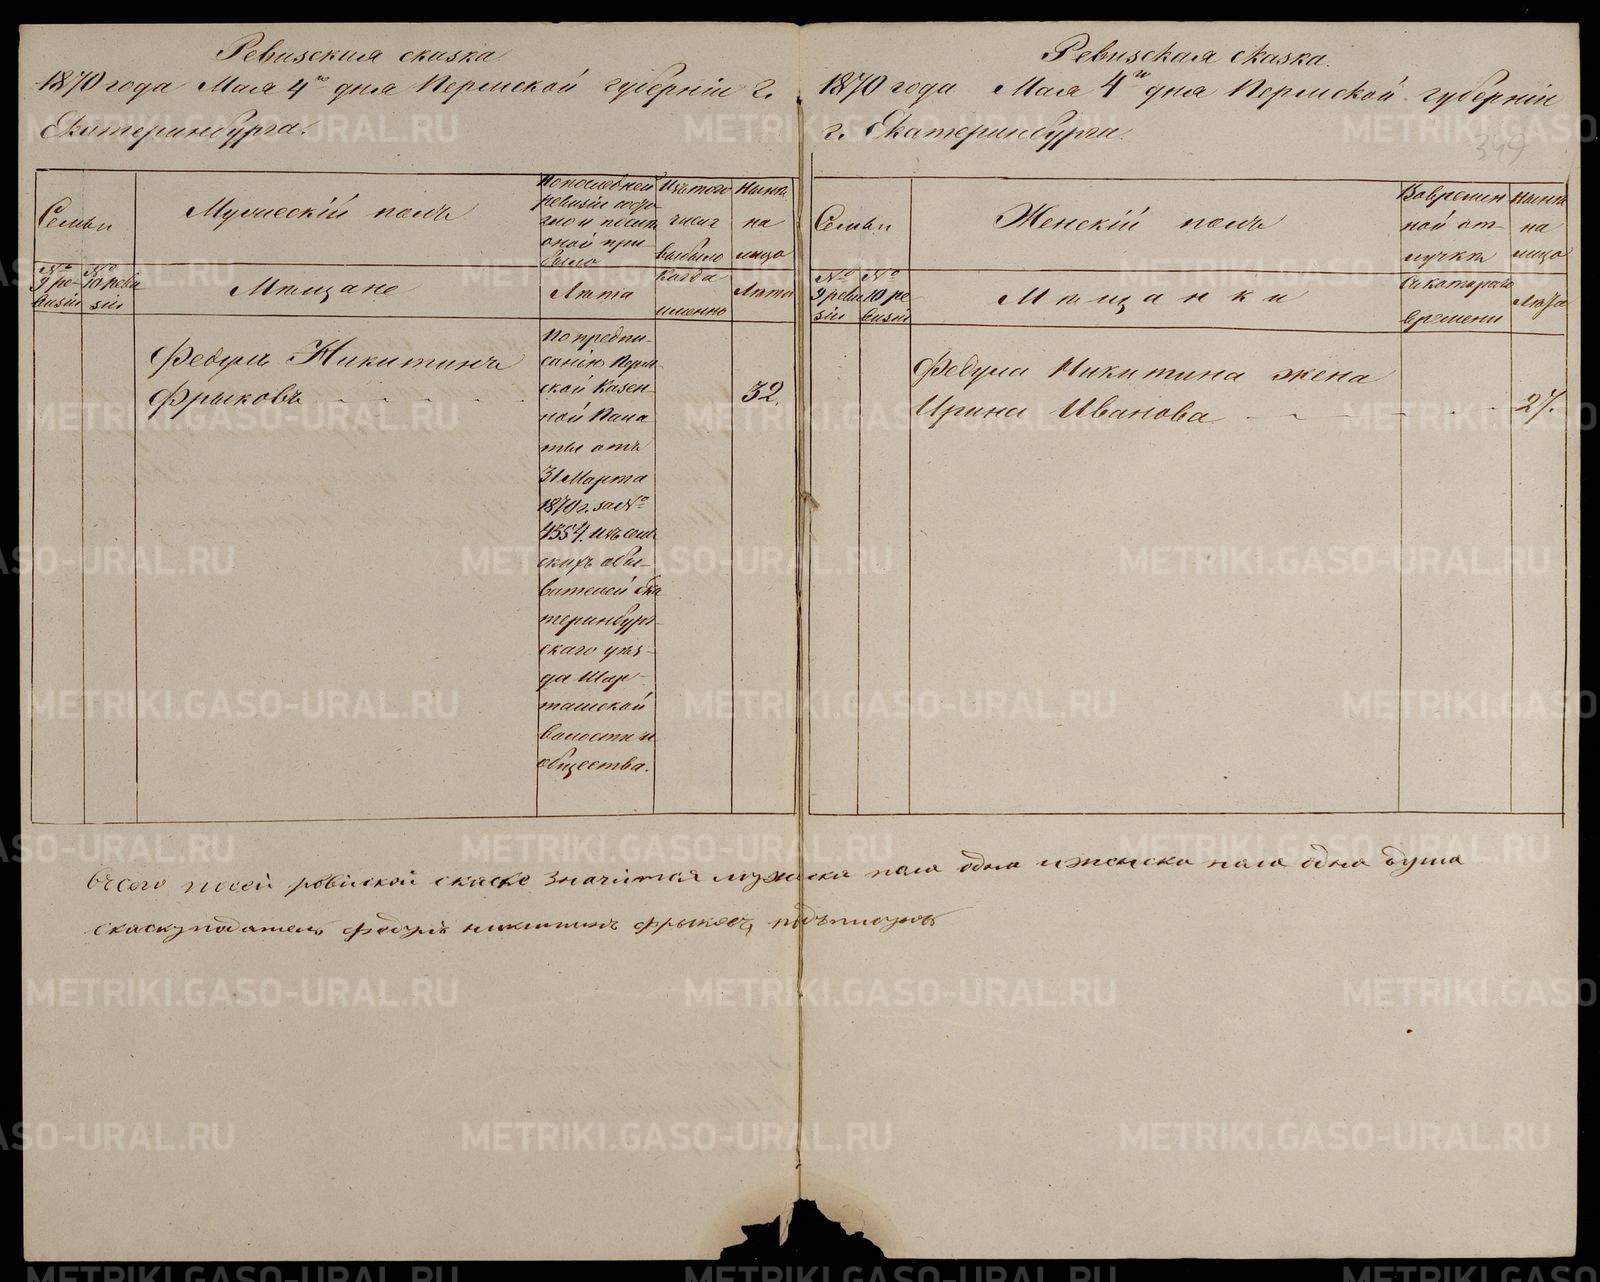 Ревизская сказка
1870 года Мая 4го дня Пермской губернiи г.
Екатеринбурга.
Семьи
Мужескiй полъ
По последней
ревизiи состо
яло и после
оной при
было
Изъ того
числа
выбыло
Ныне
на
лицо
№
9 ре-
визiи
№
10 реви
зiи
Мѣщане
Лѣта
Когда
именно
Лѣта
Федулъ Никитинъ
Фрыковъ
По предпи-
санiю Перм
ской Казен
ной Пала
ты отъ
31 Марта
1870 г. за №
4354. изъ сель
скихъ обы-
вателей Ека
теринбург-
скаго уѣз-
да Шар-
ташской
волости и
общества.
32.
Ревизская сказка.
1870 года Мая 4го дня Пермской губернiи
г. Екатеринбурга.
349
Семьи
Женскiй полъ
Во времен
ной от-
лучкѣ
Ныне
на
лицо
№
9 реви
зiи
№
10 ре
визiи
Мѣщанки
Съ котораго
времени
Лѣта
Федула Никитина жена
Ирина Иванова
27.
Всего по сей ревиской скаске значится мужеска пола одна и женска пола одна душа
скаскуподатель федулъ никитинъ фрыковъ
METRIKI.GASO-URAL.RU